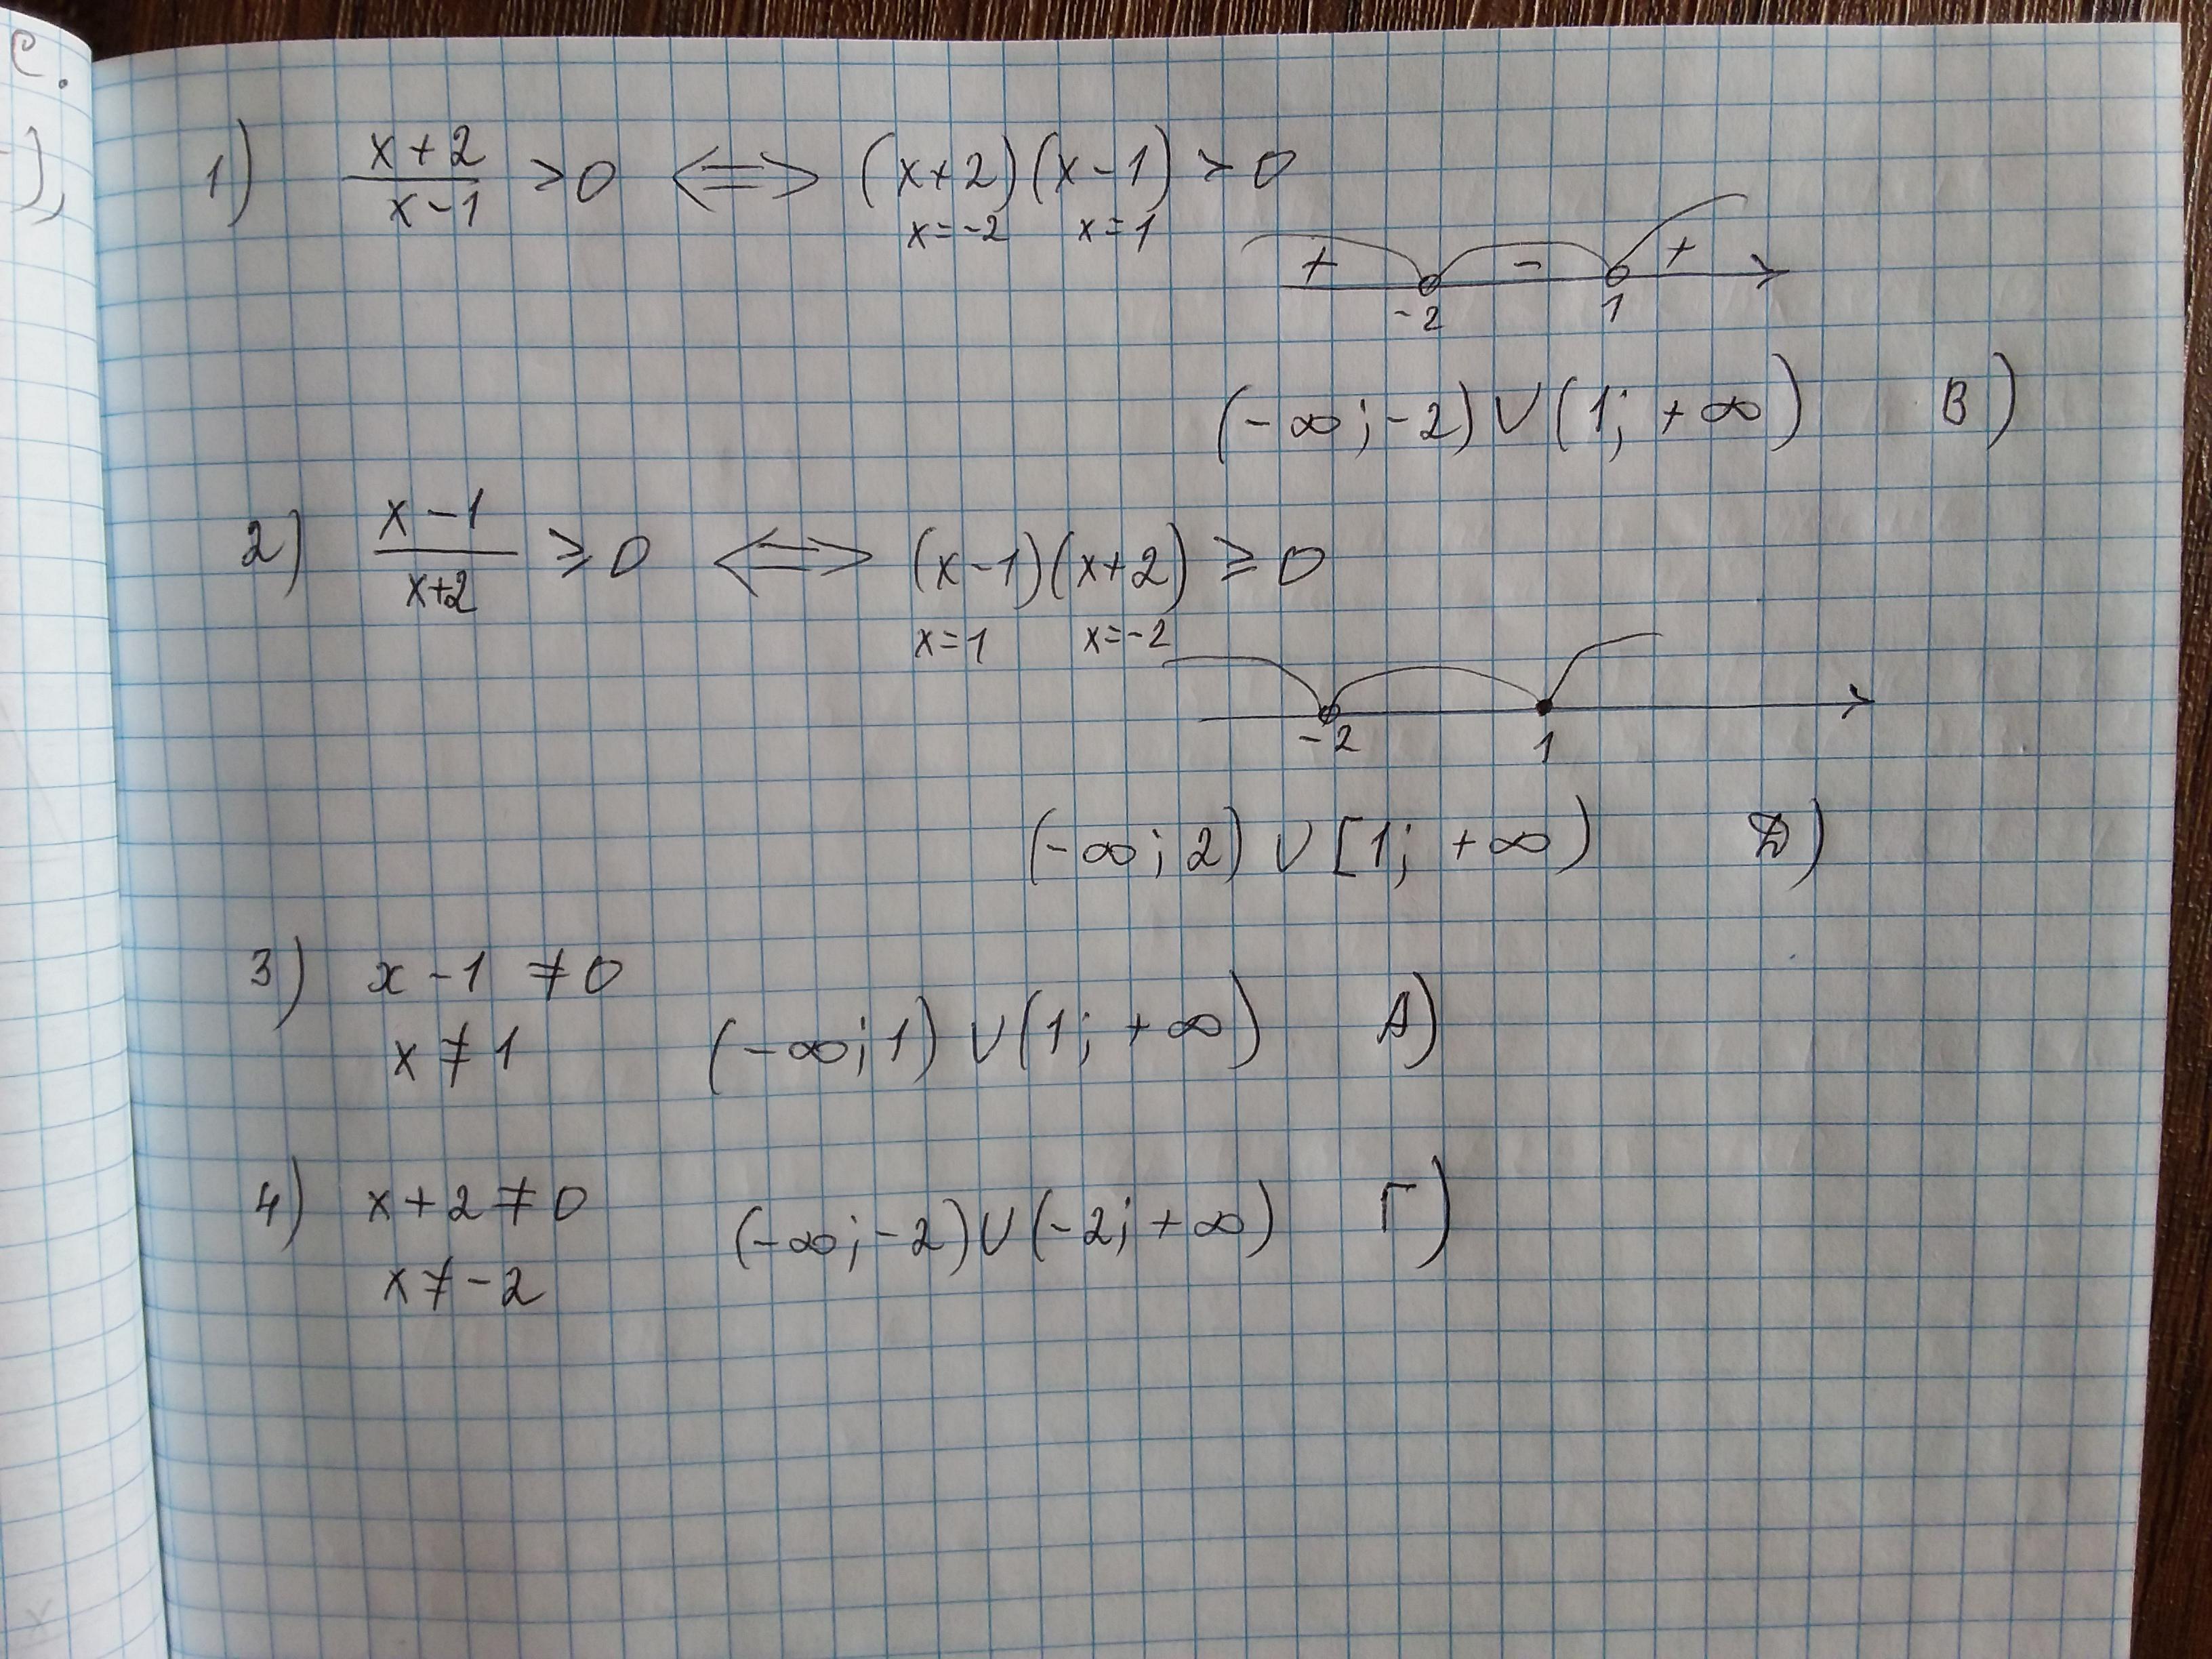 е.
),
1) x+2 / x-1 >0 <=> (x+2)(x-1) > 0
x=-2 x=1
+ - +
-2 1
(-∞;-2) ∪ (1; +∞) В)
2) x-1 / x+2 ≥ 0 <=> (x-1)(x+2) ≥ 0
x=1 x=-2
-2 1
(-∞; 2) ∪ [1; +∞) Д)
3) x-1 ≠0
x ≠ 1 (-∞;1) ∪ (1; +∞) А)
4) x+2 ≠ 0 (-∞;-2) ∪ (-2; +∞) Г)
x ≠ -2